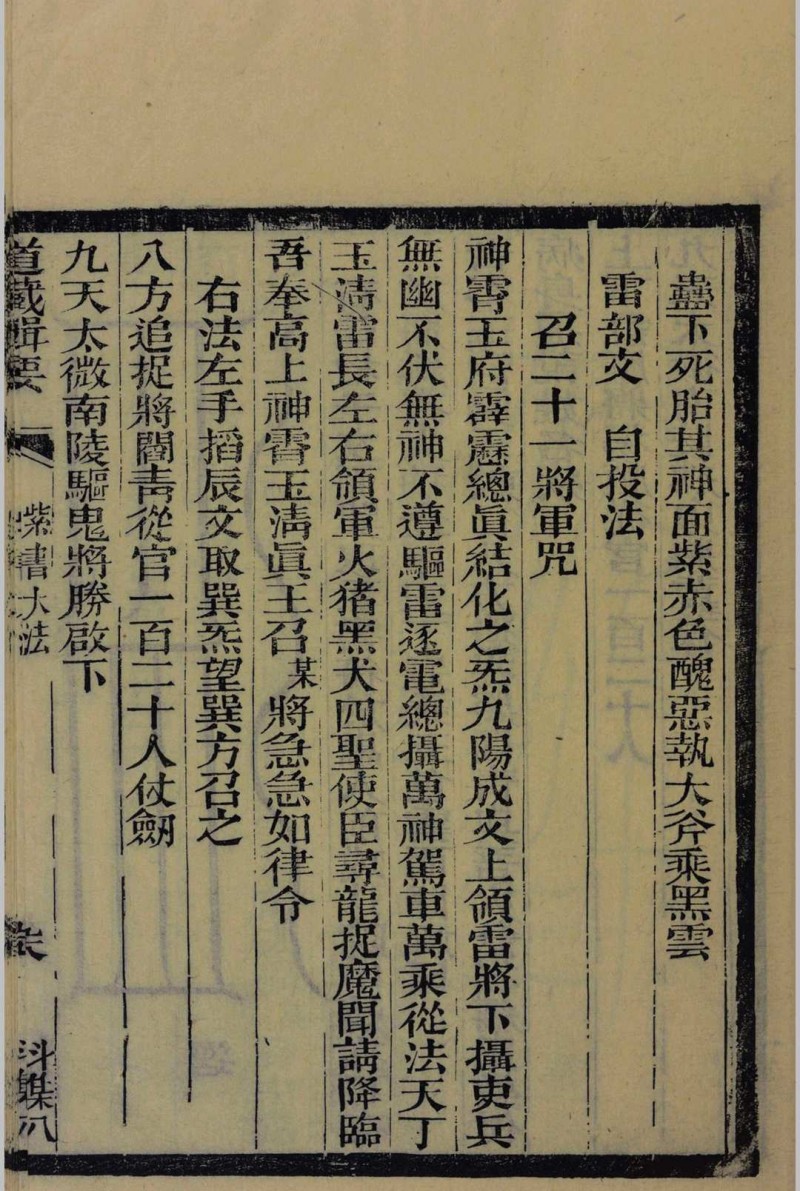 蠱下死胎其神面紫赤色醜惡執大斧乘黑雲
雷部文　自投法
召二十一將軍咒
神霄玉府霹靂總眞結化之炁九陽成文上領雷將下攝吏兵
無幽不伏無神不遵驅雷逐電總攝萬神駕車萬乘從法天丁
玉淸雷長左右領軍火猪黑犬四聖使臣尋龍捉魔聞請降臨
吾奉高上神霄玉淸眞王召某將急急如律令
右法左手搯辰文取巽炁望巽方召之
八方追捉將閻靑從官一百二十人仗劒
九天太微南陵驅鬼將勝啟下
道藏輯要　紫書大法